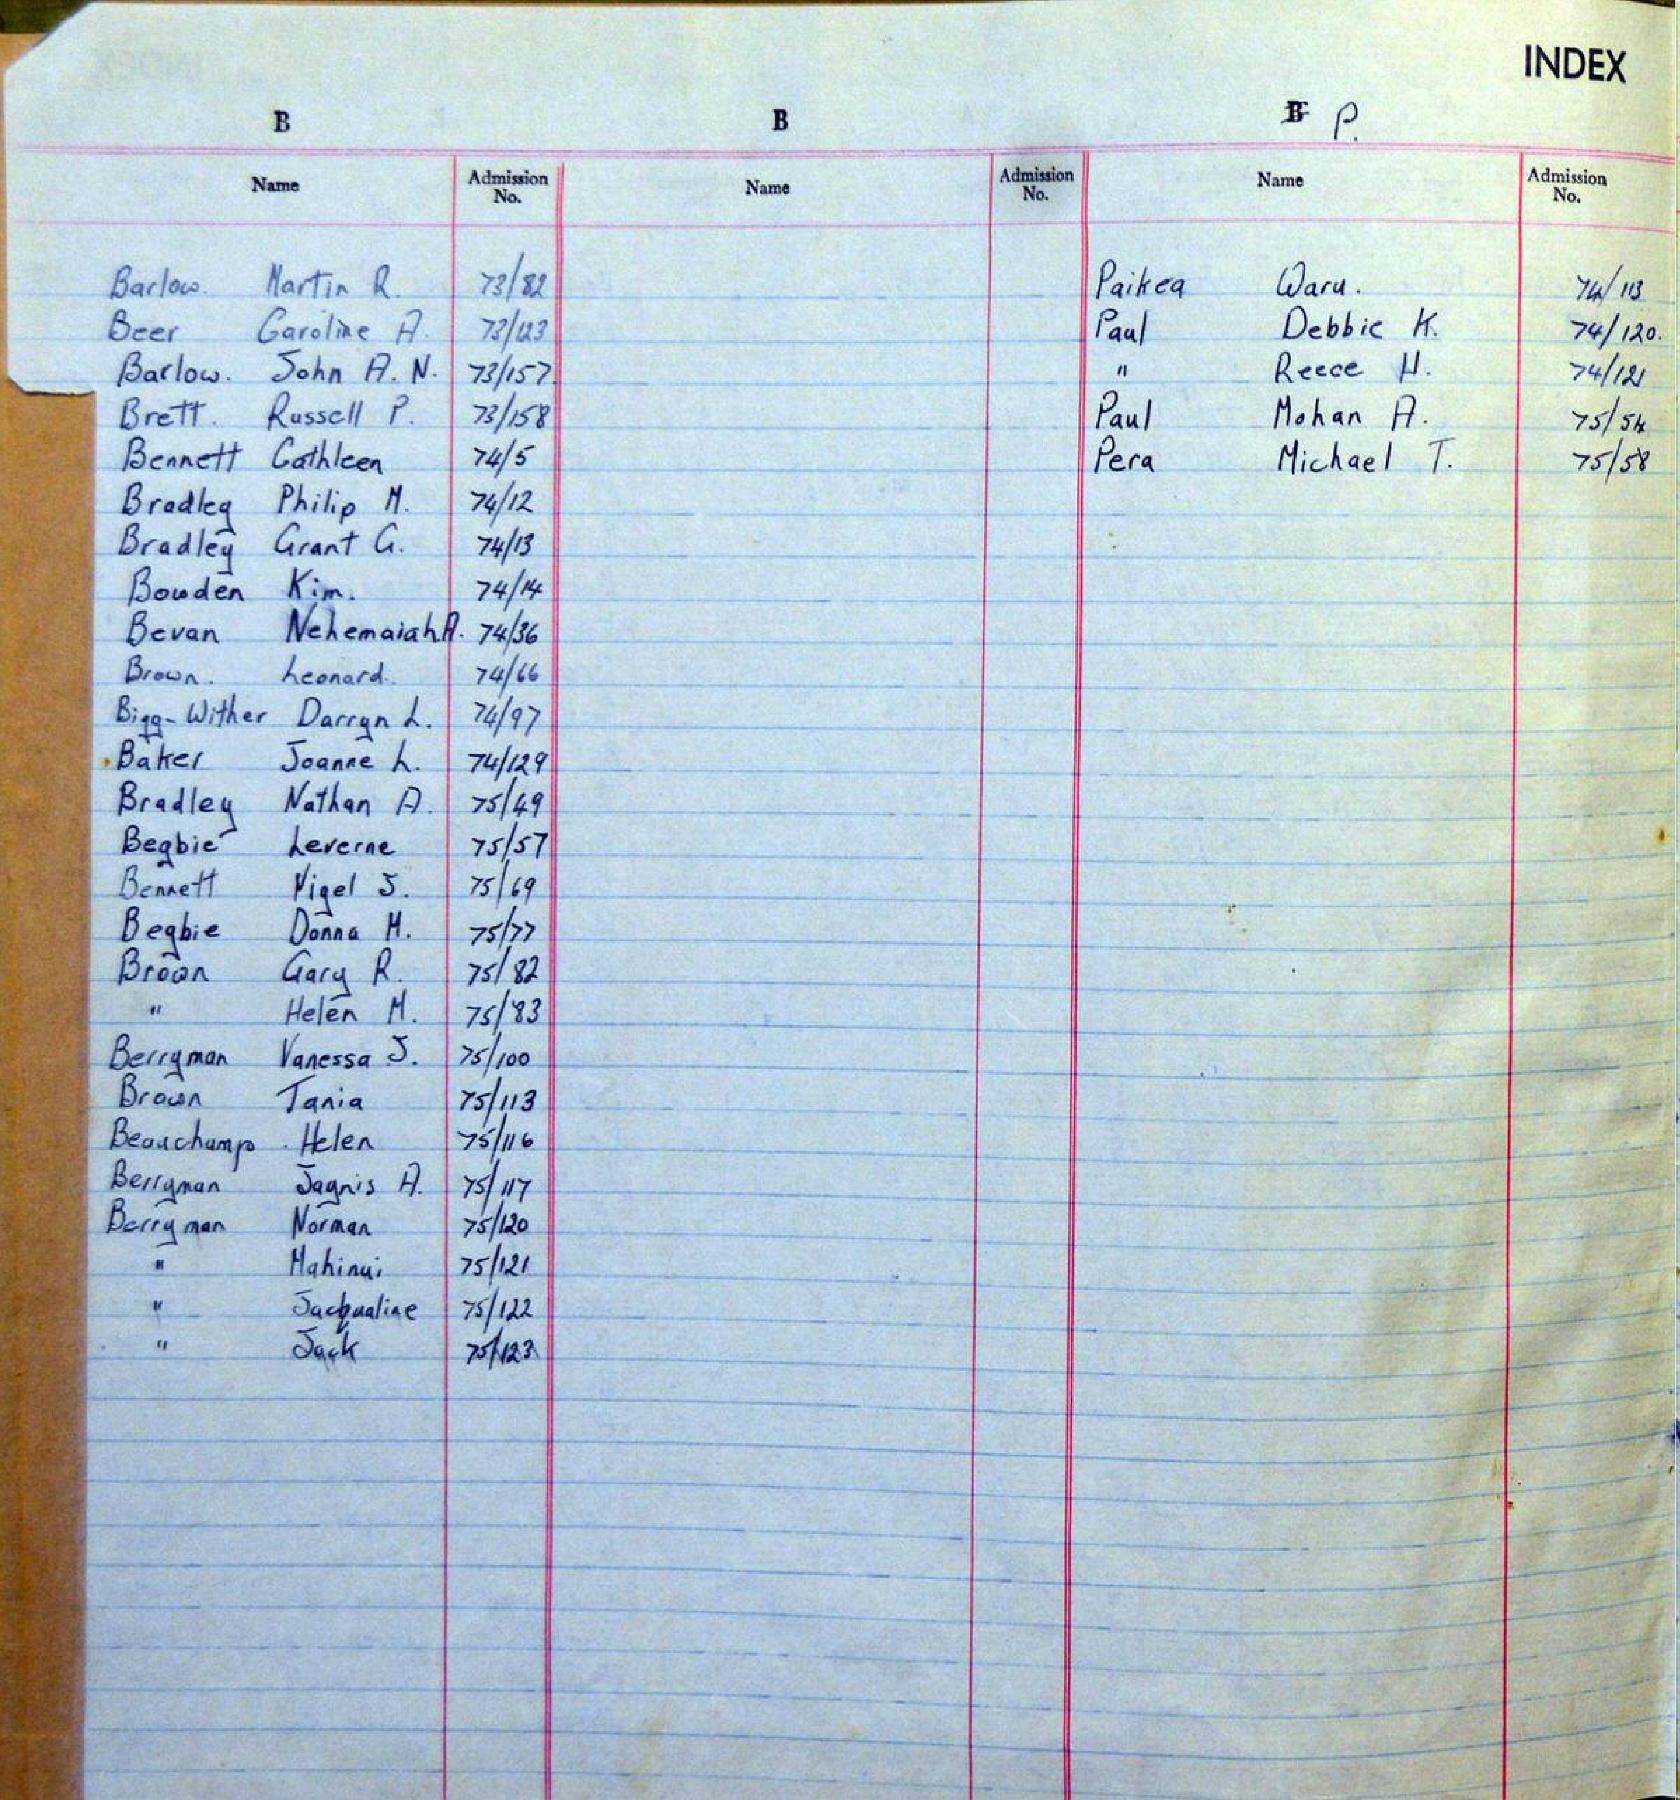 INDEX
B B B P.
Name Admission No. Name Admission No. Name Admission No.
Barlow. Martin R. 73/82
Beer Caroline A. 73/123
Barlow. John A. N. 73/157
Brett. Russell P. 73/158
Bennett Cathleen 74/5
Bradley Philip M. 74/12
Bradley Grant G. 74/13
Bowden Kim. 74/14
Bevan Nehemaiah A. 74/36
Brown. Leonard. 74/66
Bigg-Wither Darryn L. 74/97
Baker Joanne L. 74/129
Bradley Nathan A. 75/49
Begbie Leverne 75/57
Bennett Nigel J. 75/69
Begbie Donna M. 75/77
Brown Gary R. 75/82
" Helen M. 75/83
Berryman Vanessa J. 75/100
Brown Tania 75/113
Beauchamp Helen 75/116
Berryman A. 75/117
Berryman Norman 75/120
" Mahinui 75/121
" Jacqualine 75/122
" Jack 75/123
Paikea Waru. 74/113
Paul Debbie K. 74/120.
" Reece H. 74/121
Paul Mohan A. 75/54
Pera Michael T. 75/58